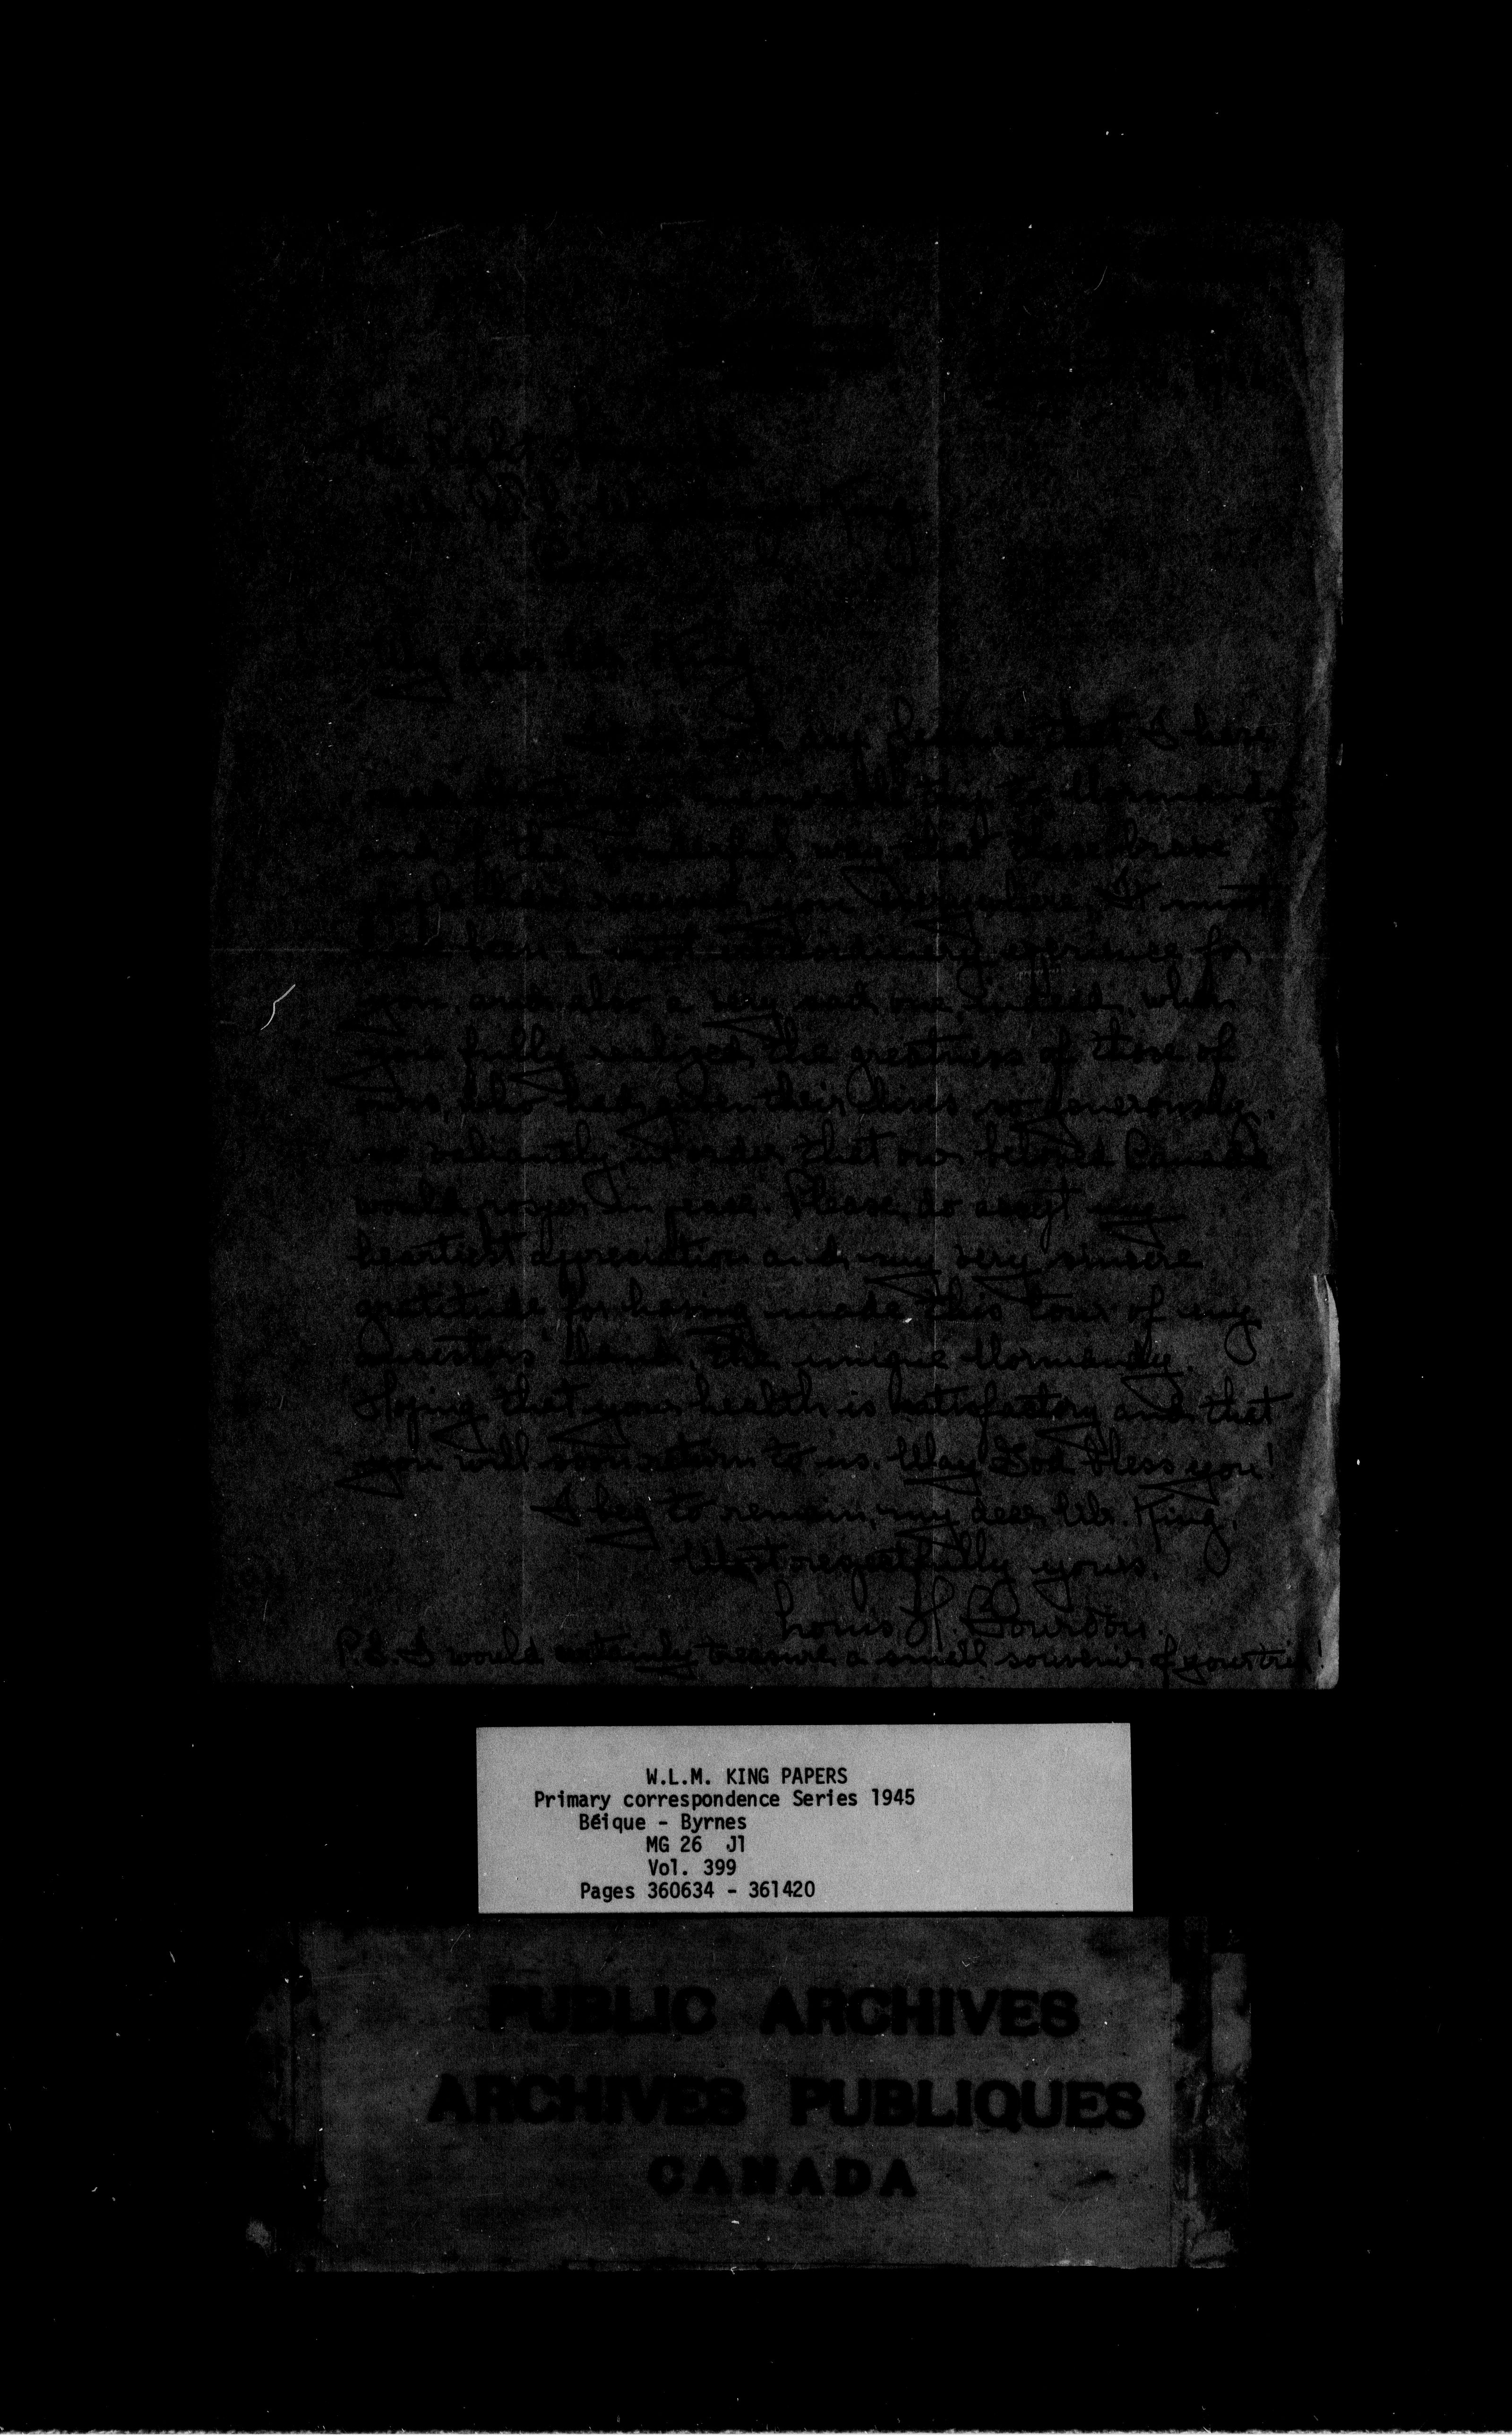 The Right Honourable
W. L. Mackenzie King
My dear Mr. King,
It is with pleasure that I have
read about your memorable trip to Normandy
and of the wonderful way that these brave
people have received you everywhere. It must
have been a most extraordinary experience for
you, and also a very sad one indeed, when
you fully realized the greatness of those of
ours who had given their lives so generously,
so valiantly, in order that our beloved Canada
would prosper in peace. Please do accept my
heartiest appreciation and my very sincere
gratitude for having made this tour of my
ancestors' land, the unique Normandy.
Hoping that your health is satisfactory and that
you will soon return to us. May God bless you!
I beg to remain, my dear Mr. King,
Most respectfully yours,
Louis H. Bourdon.
P.S. I would certainly treasure a small souvenir of your trip!
W.L.M. KING PAPERS
Primary correspondence Series 1945
Béique - Byrnes
MG 26 J1
Vol. 399
Pages 360634 - 361420
PUBLIC ARCHIVES
ARCHIVES PUBLIQUES
CANADA